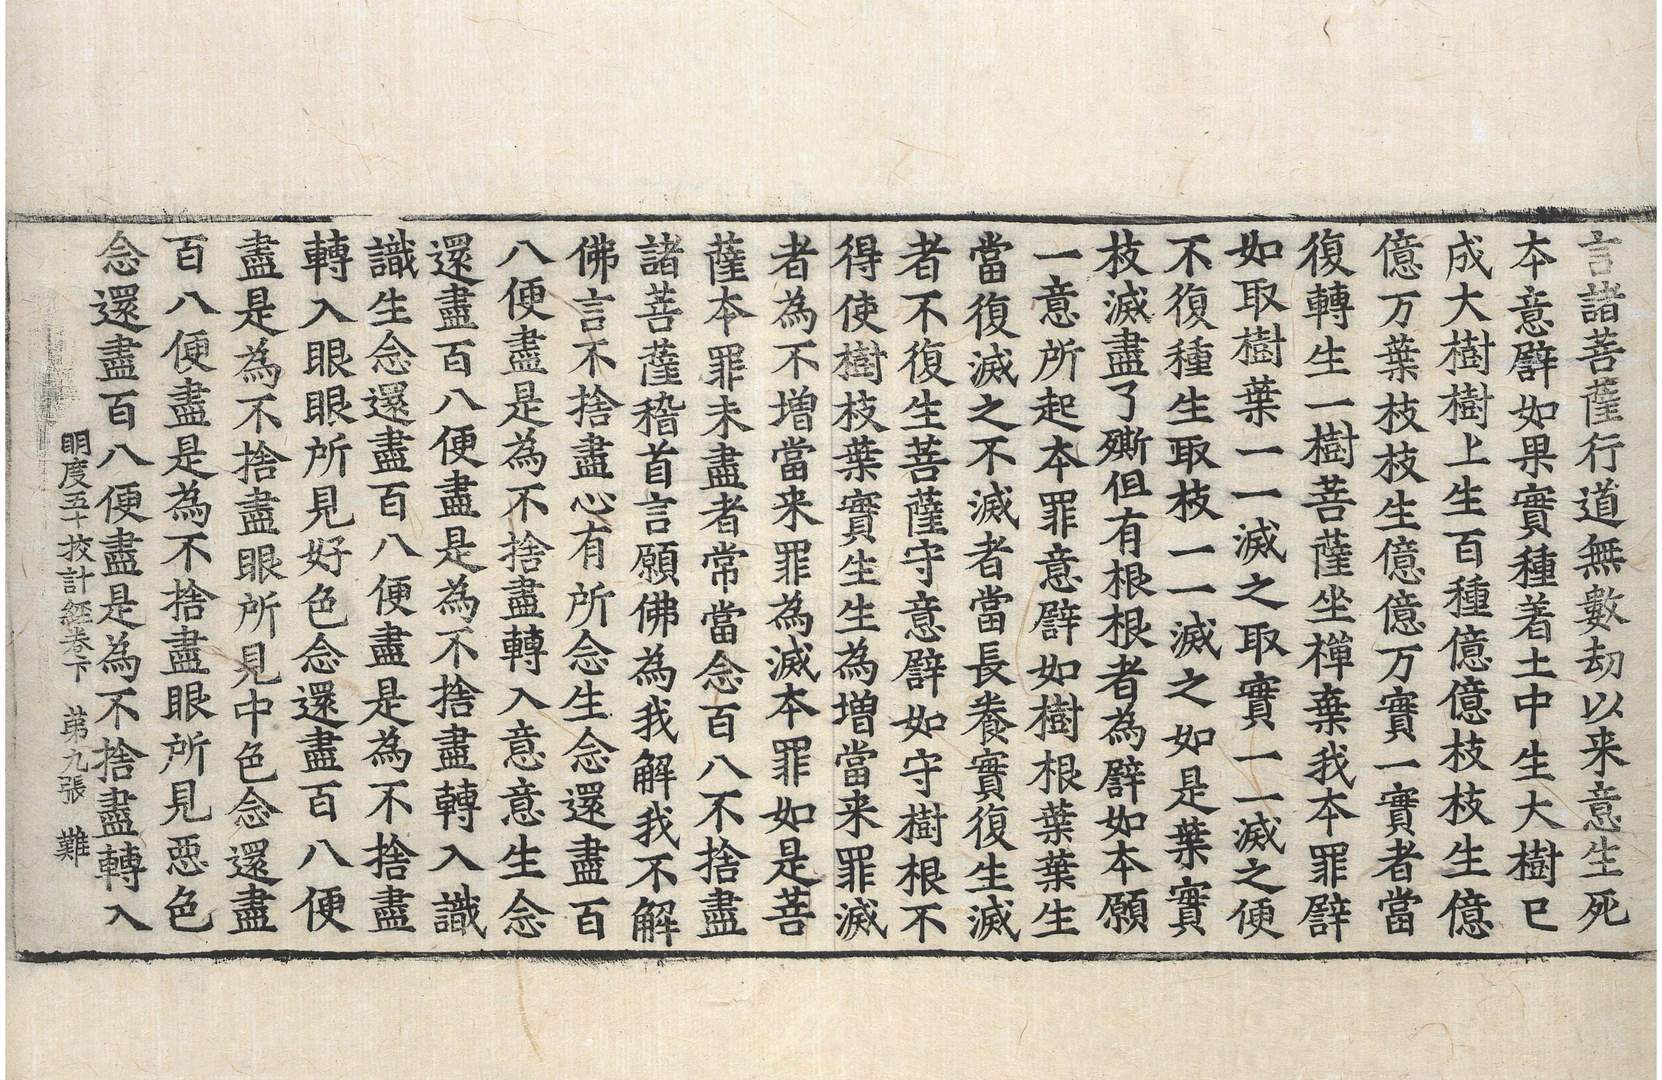 言諸菩薩行道無數劫以来意生死
本意譬如果實種著土中生大樹已
成大樹樹上生百種億億枝枝生億
億万葉枝枝生億億万實一實者當
復轉生一樹菩薩坐禪棄我本罪譬
如取樹葉一一滅之取實一一滅之便
不復種生取枝一一滅之如是葉實
枝滅盡了斷但有根根者為譬如本願
一意所起本罪意譬如樹根葉葉生
當復滅之不滅者當長養實復生滅
者不復生菩薩守意譬如守樹根不
得使樹枝葉實生生為増當来罪滅
者為不増當来罪為滅本罪如是菩
薩本罪未盡者常當念百八不捨盡
諸菩薩稽首言願佛為我解我不解
佛言不捨盡心有所念生念還盡百
八便盡是為不捨盡轉入意意生念
還盡百八便盡是為不捨盡轉入識
識生念還盡百八便盡是為不捨盡
轉入眼眼所見好色念還盡百八便
盡是為不捨盡眼所見中色念還盡
百八便盡是為不捨盡眼所見惡色
念還盡百八便盡是為不捨盡轉入
明度五十挍計經卷下 第九張 難